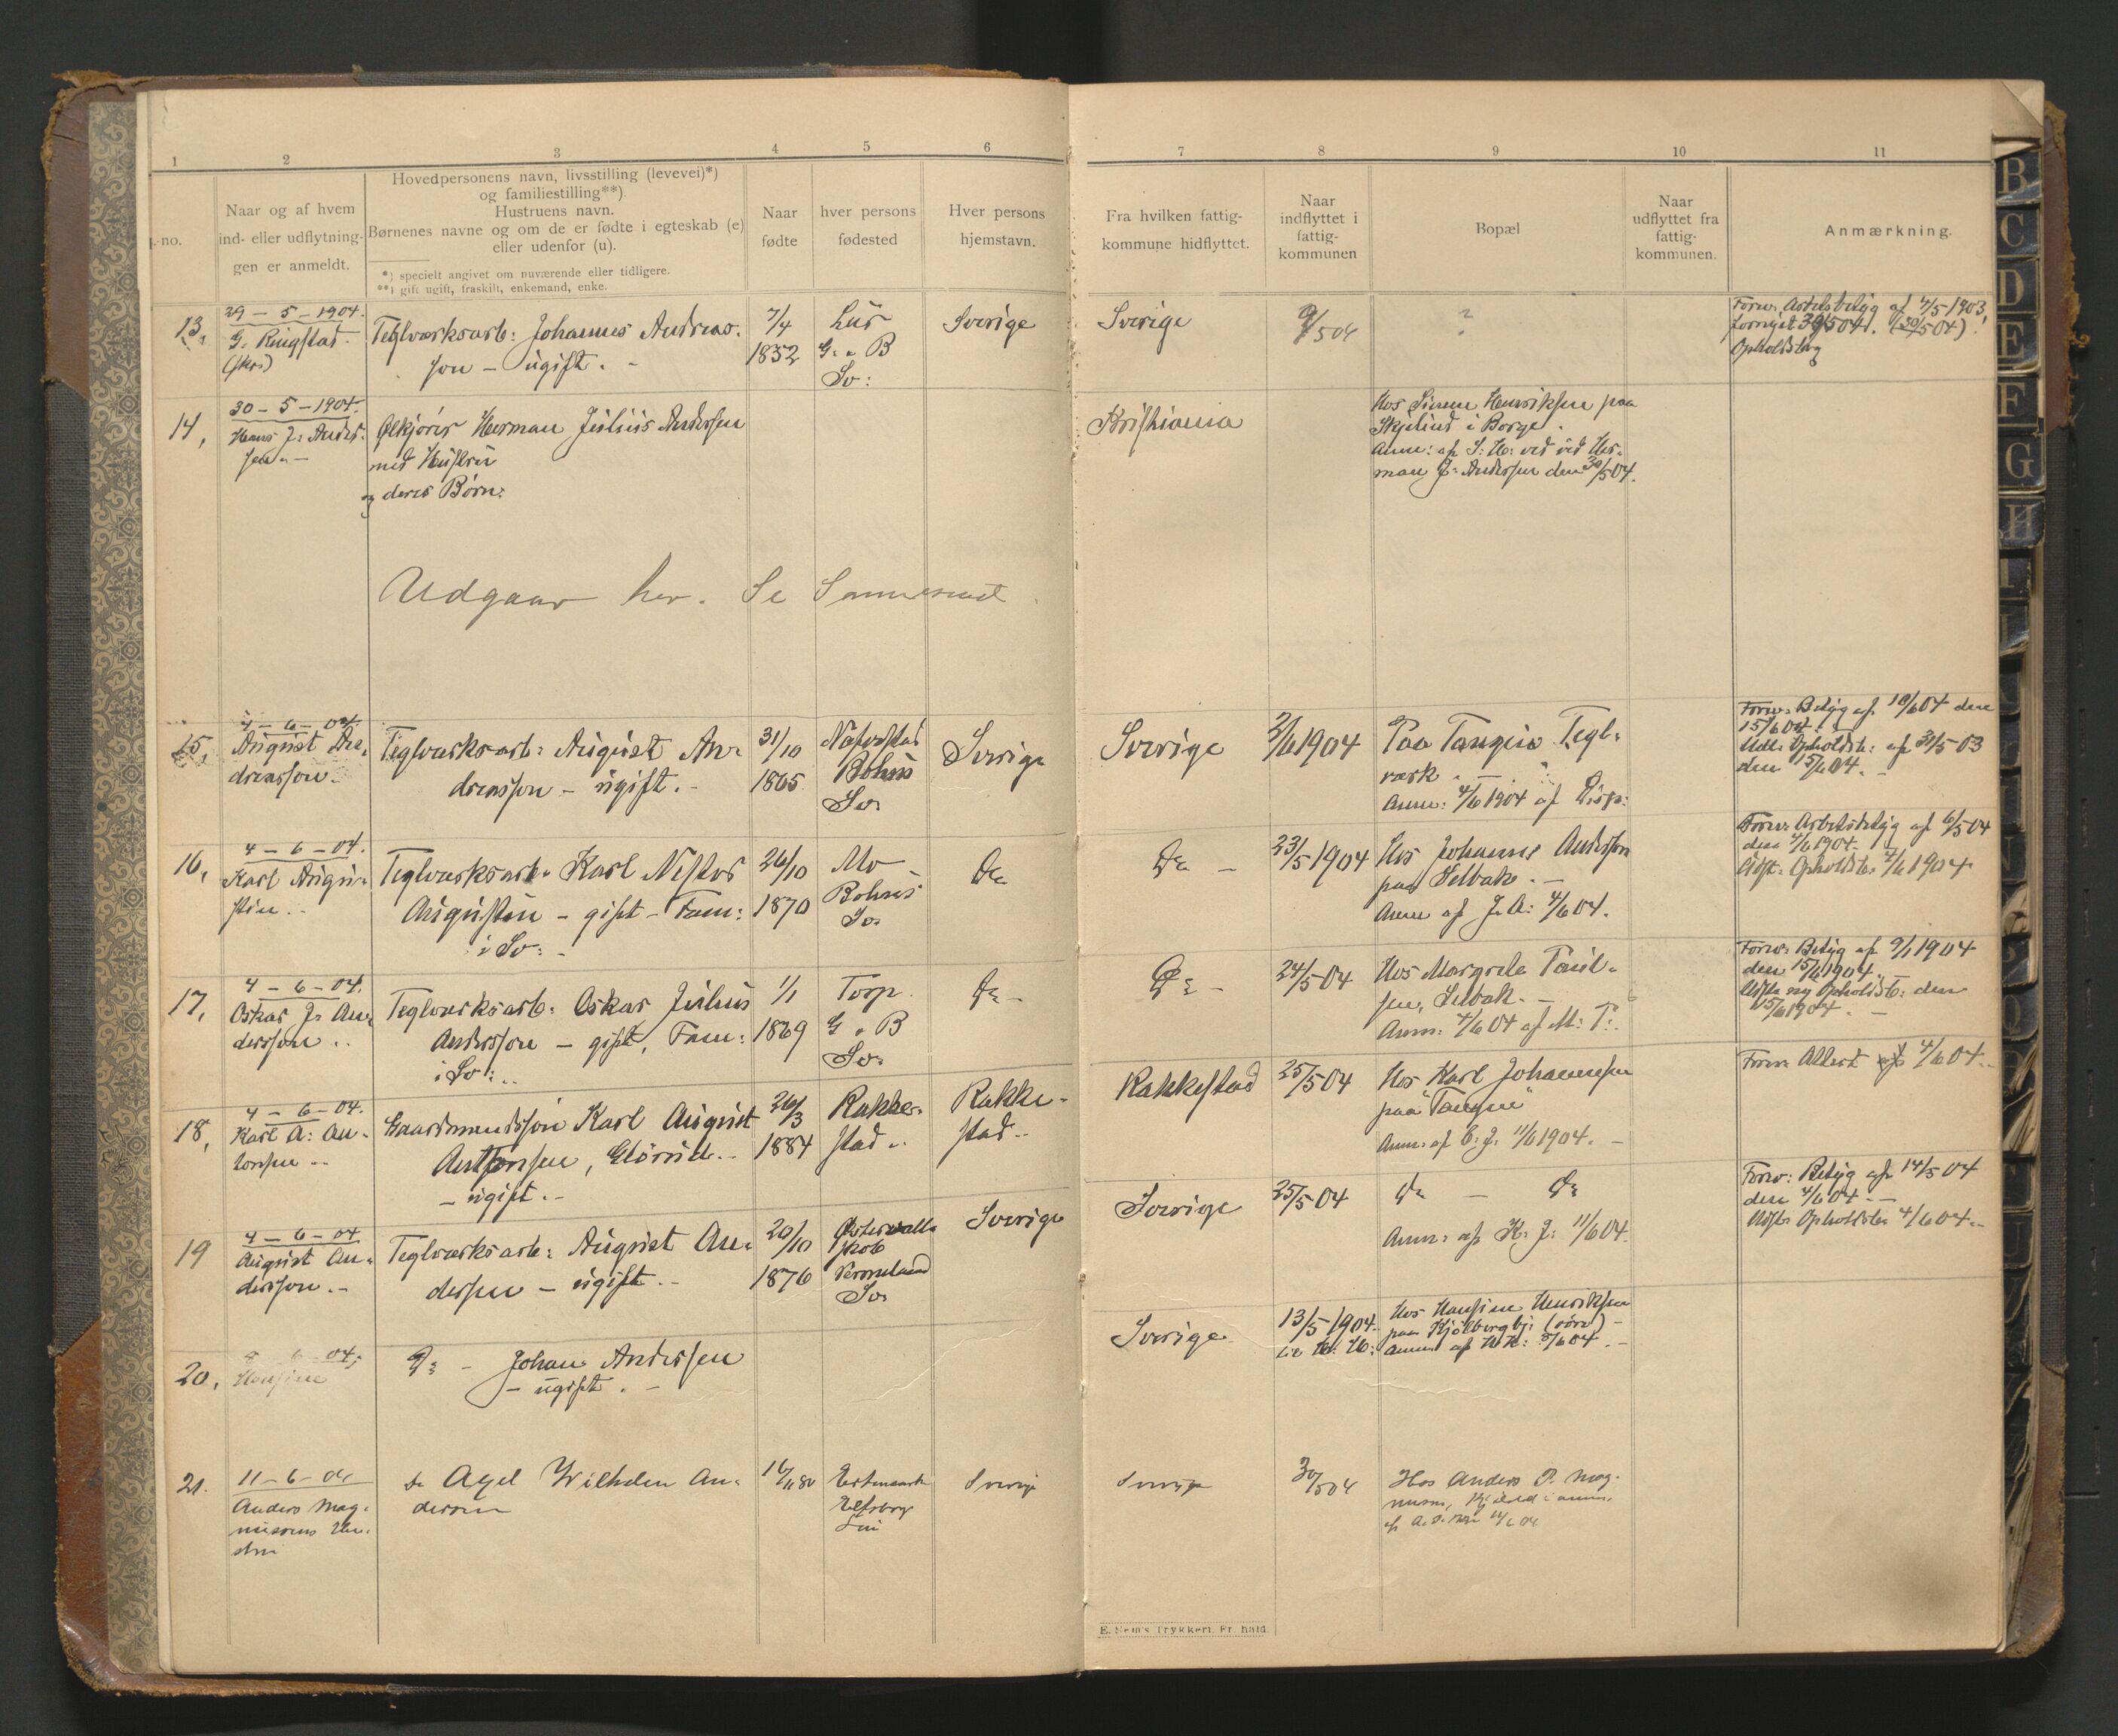 1 2 3 4 5 6 7 8 9 10 11
.-no.
Naar og af hvem
ind- eller udflytnin-
gen er anmeldt.
Hovedpersonens navn, livsstilling (levevei)*)
og familiestilling**).
Hustruens navn.
Børnenes navne og om de er fødte i egteskab (e)
eller udenfor (u).
*) specielt angivet om nuværende eller tidligere.
**) gift ugift, fraskilt, enkemand, enke.
Naar
fødte
hver persons
fødested
Hver persons
hjemstavn.
Fra hvilken fattig-
kommune hidflyttet.
Naar
indflyttet i
fattig-
kommunen
Bopæl
Naar
udflyttet fra
fattig-
kommunen.
Anmærkning.
13,
29-5-1904.
G. Ringstad
(skr:)
Teglværksarb: Johannes Andreas-
son - ugift. -
7/4
1852
Lur
G. o B
Sv:
Sverige
Sverige
9/504
?
Forev: Arbetsbetyg af 4/5 1903,
fornyet 30/504. (30/504)!
Opholdsbog
14,
30-5-1904.
Hans J:Ander-
sen. -
Ølkjører Herman Julius Andersen
med Hustru
og deres Børn:
Kristiania
Hos Simen Henriksen paa
Skjelind i Borge.
Anm: af S: H: ved Her-
man J: Andersen den 30/504.
Udgaar her. Se
15,
4-6-04.
August An-
dreasson.
Teglværksarb: August An-
dreasson - ugift. -
31/10
1865
Naverstad
Bohus
Sv:
Sverige
Sverige
2/6 1904
Paa Tangen Tegl-
værk. -
Anm: 4/6 1904 af Disp:
Forev: Betyg af 10/604 den
15/604.
Udl: Opholdsb: af 31/5 03
den 15/604. -
16,
4-6-04.
Karl Augu-
stin. -
Teglværksarb. Karl Nestor
Augustin - gift - Fam:
i Sv: -
26/10
1870
Mo
Bohus
Sv:
Do
Do -
23/5 1904
Hos Johannes Andersson
paa Selbak. -
Anm af J. A: 4/604.
Forev: Arbetsbetyg af 6/504
den 4/6 1904.
Udst: Opholdsb. 4/6 1904
17,
4-6-04.
Oskar J: An-
dersson. .
Teglværksarb: Oskar Julius
Andersson - gift, Fam:
i Sv: . .
1/1
1869
Torp
G. o B
Sv:
Do -
Do -
24/5 04
Hos Margrete Paul-
sen, Selbak. -
Anm: 4/6 04 af M: P:.
Forev: Betyg af 9/1 1904
den 15/6 1904. -
Udst: ny Opholdsb: den
15/6 1904. -
18,
4-6-04.
Karl A: An-
tonsen. -
Gaardmandssøn Karl August
Antonsen,
- ugift. -
26/3
1884
Rakke-
stad. .
Rakke-
stad. .
Rakkestad
25/5 04
Hos Karl Johannesen
paa "Tangen"
Anm: af C. J. 11/6 1904. -
Forev. Attest af 4/6 04. -
19
4-6-04
August An-
dersson. -
Teglværksarb: August An-
dersen - ugift. -
20/10
1876
Østervalls-
skob
Vermeland
Sv:
Sverige
Sverige
25/5 04
Do - Do
Anm: af K: J: 11/604.
Forev: Betyg af 14/5 04
den 4/604. -
Udst: Opholdsb. 4/604. -
20,
8-6-04;
Hansine
Do - Johan Andersen
- ugift. -
Sverige
13/5 1904.
Hos Hansine Henriksen
paa Kjølbergbj: (øvre) -
Anm: af HH: 8/604. -
21.
11-6-04
Anders Mag-
nussens Hu-
stru
do Axel Wilhelm An-
dersen
16/11 80
Elfsborg
Län
Sverige
Sverige
30/504
Hos Anders P. Mag-
nusson,
E. Sem's Trykkeri. Fr.hald
B
C
D
E
F
G
H